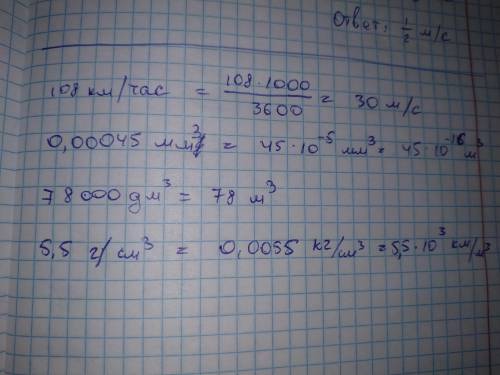 Ответ: 1/2 м/с
108 км/час = 108·1000/3600 = 30 м/с
0,00045 мм³ = 45·10⁻⁵ мм³ = 45·10⁻¹⁶ м³
78000 дм³ = 78 м³
5,5 г/см³ = 0,0055 кг/см³ = 5,5·10³ км/м³